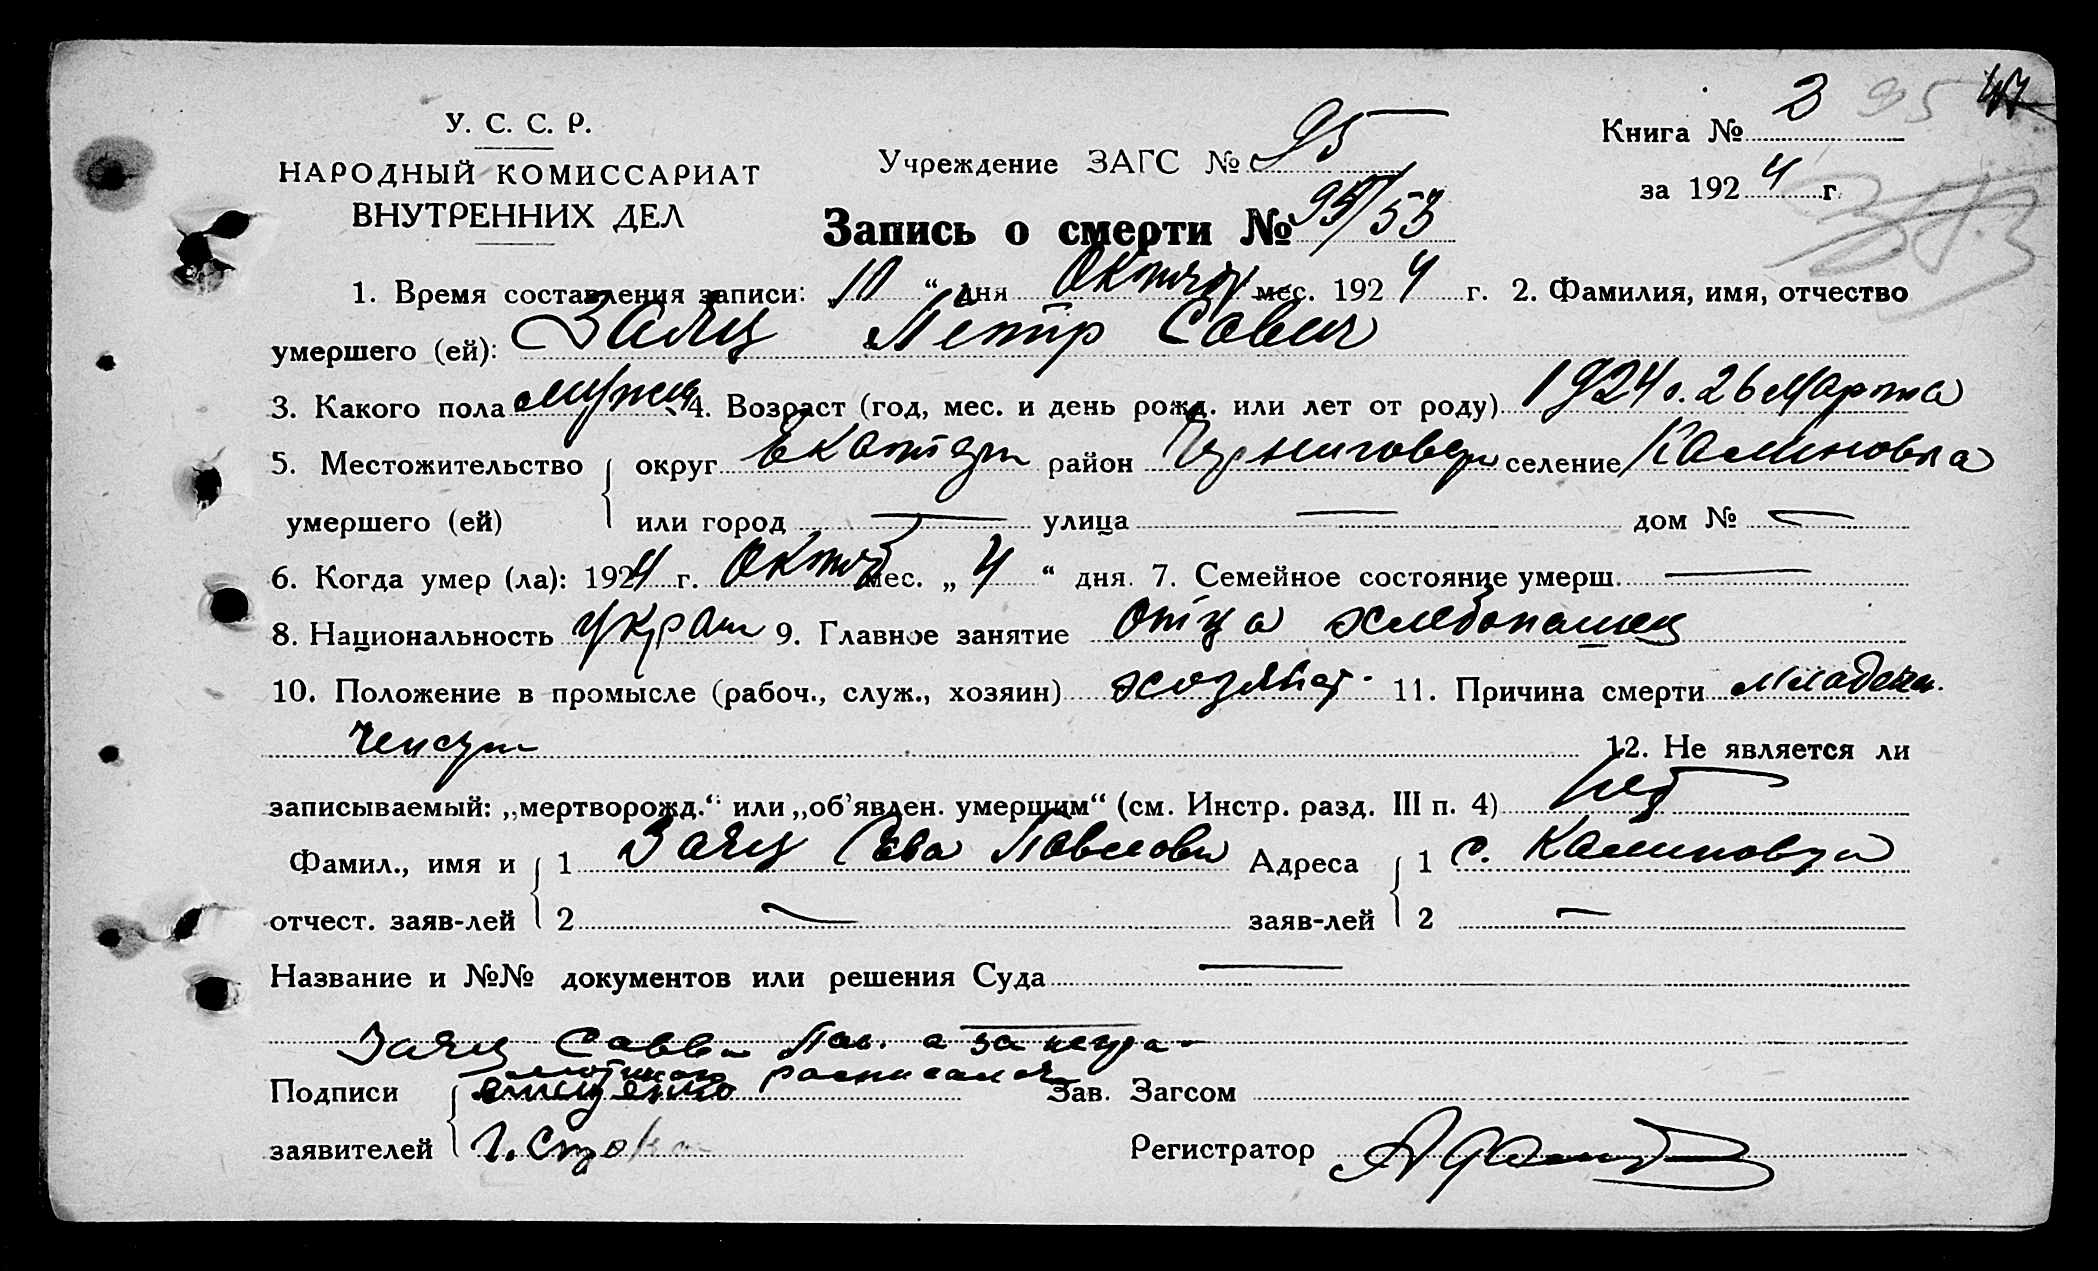 У. С. С. Р.
НАРОДНЫЙ КОМИССАРИАТ
ВНУТРЕННИХ ДЕЛ
Учреждение ЗАГС № 95
Книга № 3 95
за 1924 г.
Запись о смерти № 95/53
1. Время составления записи: „10“ дня Октяб мес. 1924 г. 2. Фамилия, имя, отчество
умершего (ей): Заяц Петр Савич
3. Какого пола мужск 4. Возраст (год, мес. и день рожд. или лет от роду) 1924 г. 26 Марта
5. Местожительство { округ Екатер район Черниговск селение Калиновка
умершего (ей) или город — улица — дом № —
6. Когда умер (ла): 1924 г. Октяб мес. „4“ дня. 7. Семейное состояние умерш. —
8. Национальность Украин 9. Главное занятие отца хлебопашец
10. Положение в промысле (рабоч., служ., хозяин) хозяин 11. Причина смерти младен.
12. Не является ли
записываемый: „мертворожд.“ или „об’явлен. умершим“ (см. Инстр. разд. III п. 4) нет
Фамил., имя и { 1 Заяц Сава Павлови Адреса { 1 с. Калиновка
отчест. заяв-лей 2 — заяв-лей 2 —
Название и №№ документов или решения Суда —
Заяц Савва Пав. а за негра-
мотного расписался
Подписи { Зав. Загсом
заявителей Регистратор